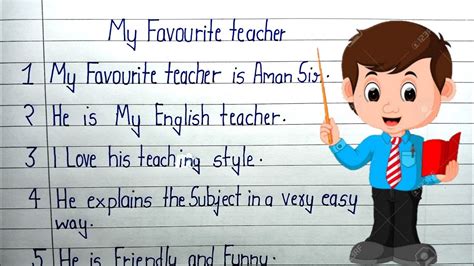 My Favourite teacher
1 My Favourite teacher is Aman Sir.
2 He is My English teacher.
3 I Love his teaching style.
4 He explains the Subject in a very easy
way.
5 He is Friendly and Funny.